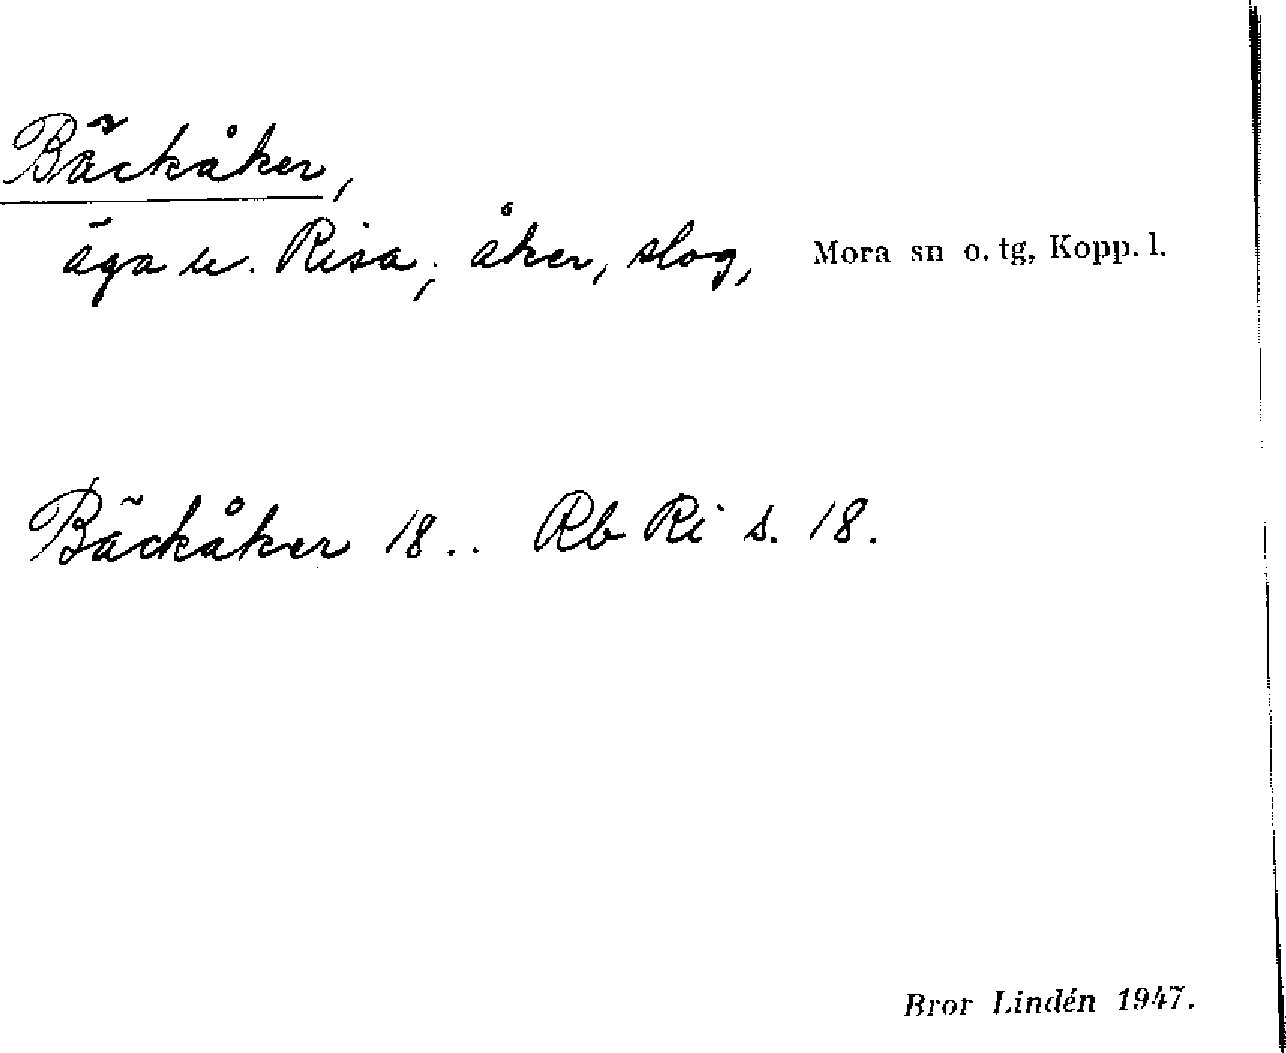 Bäckåker,
äga u. Risa; åker, slog, Mora sn o. tg, Kopp. l.
Bäckåker 18.. Rb Ri s. 18.
Bror Lindén 1947.